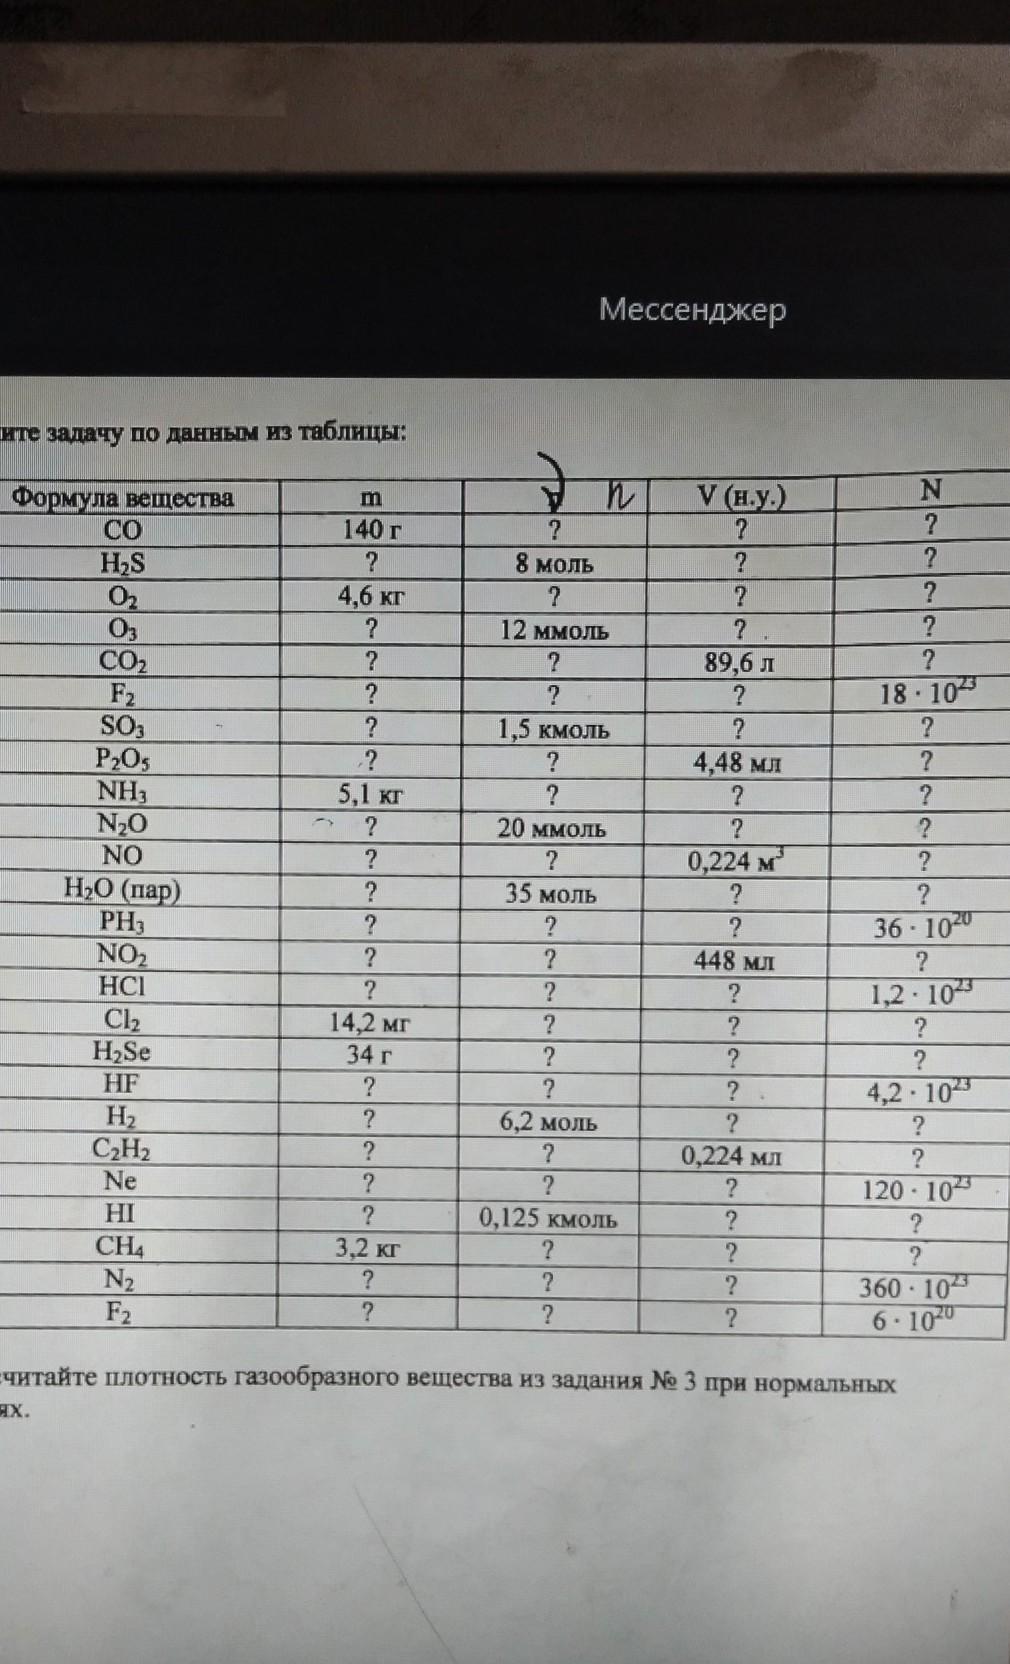 Мессенджер
ите задачу по данным из таблицы:
Формула вещества m n V (н.у.) N
CO 140 г ? ? ?
H₂S ? 8 моль ? ?
O₂ 4,6 кг ? ? ?
O₃ ? 12 ммоль ? ?
CO₂ ? ? 89,6 л ?
F₂ ? ? ? 18 · 10²³
SO₃ ? 1,5 кмоль ? ?
P₂O₅ ? ? 4,48 мл ?
NH₃ 5,1 кг ? ? ?
N₂O ? 20 ммоль ? ?
NO ? ? 0,224 м³ ?
H₂O (пар) ? 35 моль ? ?
PH₃ ? ? ? 36 · 10²⁰
NO₂ ? ? 448 мл ?
HCl ? ? ? 1,2 · 10²³
Cl₂ 14,2 мг ? ? ?
H₂Se 34 г ? ? ?
HF ? ? ? 4,2 · 10²³
H₂ ? 6,2 моль ? ?
C₂H₂ ? ? 0,224 мл ?
Ne ? ? ? 120 · 10²³
HI ? 0,125 кмоль ? ?
CH₄ 3,2 кг ? ? ?
N₂ ? ? ? 360 · 10²³
F₂ ? ? ? 6 · 10²⁰
считайте плотность газообразного вещества из задания № 3 при нормальных
ях.